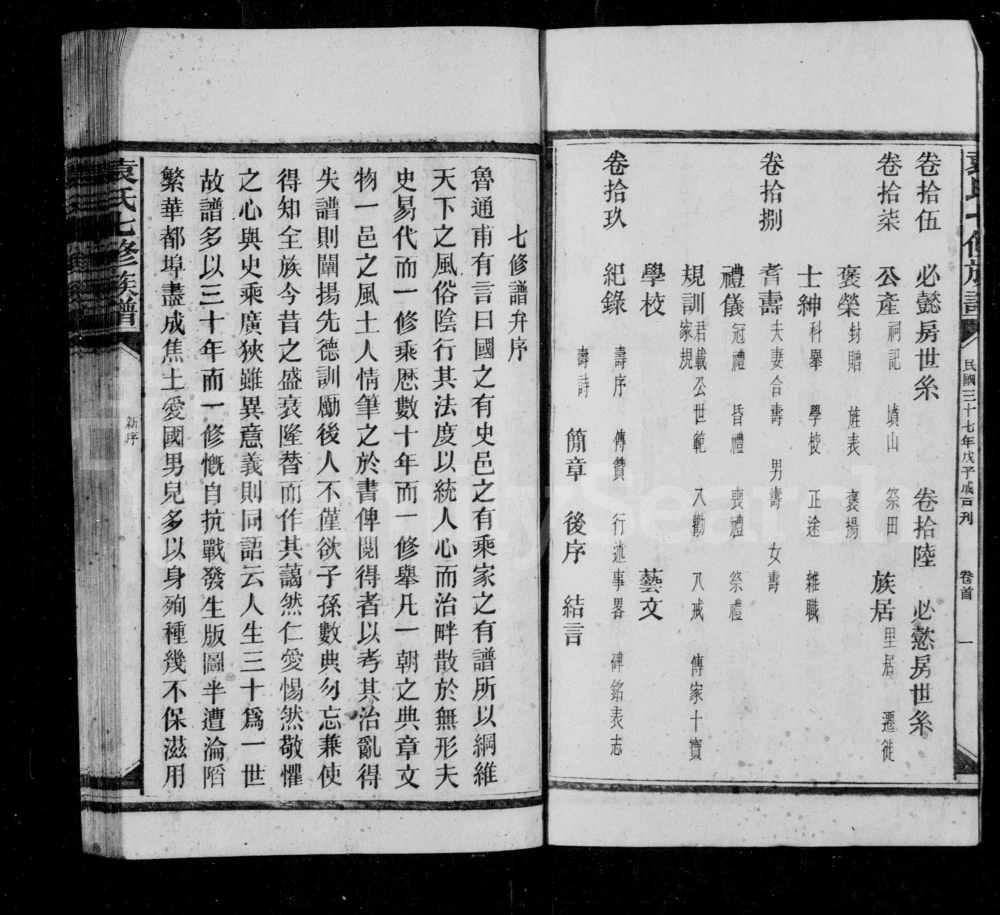 袁氏七修族譜
民國三十七年戊子歲刊
卷首
一
卷拾伍 必懿房世系 卷拾陸 必懿房世系
卷拾柒 公產 祠記 墳山 祭田 族居 里居 遷徙
褒榮 封贈 旌表 褒揚
士紳 科舉 學校 正途 雜職
卷拾捌 耆壽 夫妻合壽 男壽 女壽
禮儀 冠禮 昏禮 喪禮 祭禮
規訓 君載公世範 八勸 八戒 傳家十寶 家規
學校 藝文
卷拾玖 紀錄 壽序 傳贊 行述事畧 碑銘表志
壽詩 簡章 後序 結言
七修譜弁序
魯通甫有言曰國之有史邑之有乘家之有譜所以綱維
天下之風俗陰行其法度以統人心而治畔散於無形夫
史易代而一修乘歷數十年而一修舉凡一朝之典章文
物一邑之風土人情筆之於書俾閱得者以考其治亂得
失譜則闡揚先德訓勵後人不僅欲子孫數典勿忘兼使
得知全族今昔之盛衰隆替而作其藹然仁愛惕然敬懼
之心與史乘廣狹雖異意義則同語云人生三十爲一世
故譜多以三十年而一修慨自抗戰發生版圖半遭淪陷
繁華都埠盡成焦土愛國男兒多以身殉種幾不保滋用
袁氏七修族譜
新序
FamilySearch